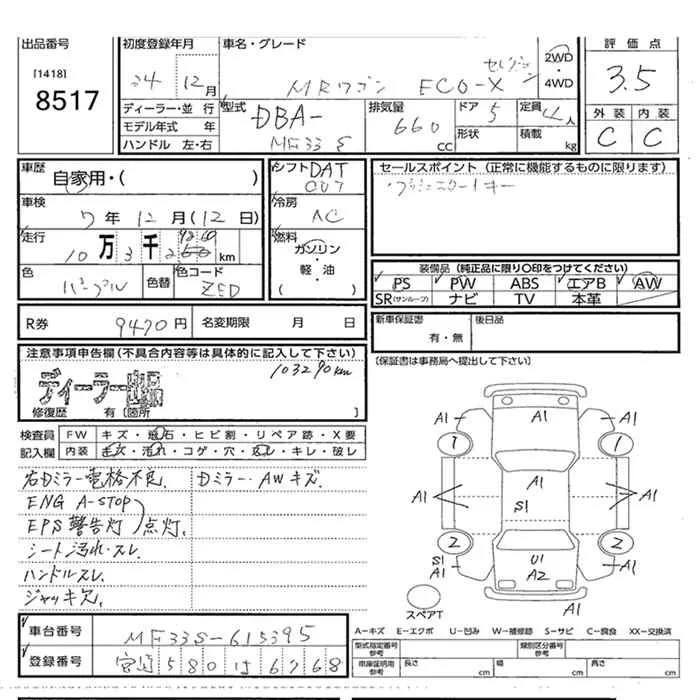 出品番号
[1418]
8517
初度登録年月
24年12月
車名・グレード
MRワゴン ECO-X セレクション
2WD
・
4WD
評価点
3.5
外装 内装
C C
ディーラー・並行
モデル年式 年
ハンドル 左・右
型式
DBA-
MF33S
排気量
660
CC
ドア 5
形状
定員 4人
積載 kg
車歴
自家用・( )
車検
7年12月(12日)
走行
10万3千 km
色
パープル
色替
色コード
ZED
シフト DAT
CVT
冷房
AC
燃料
ガソリン
・
軽・油
( )
セールスポイント (正常に機能するものに限ります)
・プッシュスタートキー
装備品 (純正品に限り○印をつけてください)
PS PW ABS エアB AW
SR(サンルーフ) ナビ TV 本革
R券 9470円 名変期限 月 日
新車保証書
有・無
後日品
(保証書は事務局へ提出して下さい)
注意事項申告欄(不具合内容等は具体的に記入して下さい)
103290km
ディーラー
修復歴 有〔箇所 〕
検査員
記入欄
FW キズ・飛石・ヒビ割・リペア跡・X要
内装 キズ・汚れ・コゲ・穴・スレ・キレ・破レ
右Dミラー電格不良. Dミラー・AWキズ.
ENG A-STOP
EPS警告灯 点灯.
シート汚れ・スレ.
ハンドルスレ.
ジャッキ欠.
A1
A1 A1
1 1
A1
A1 S1 A1
2 2
S1
A1 U1
A2 S1
A1
スペアT
A-キズ E-エクボ U-凹み W-補修跡 S-サビ C-腐食 XX-交換済
車台番号 MF33S-615395
登録番号 宮崎580ほ6768
型式指定番号
参考
類別区分番号
参考
車庫証明用
参考
長さ cm 幅 cm 高さ cm